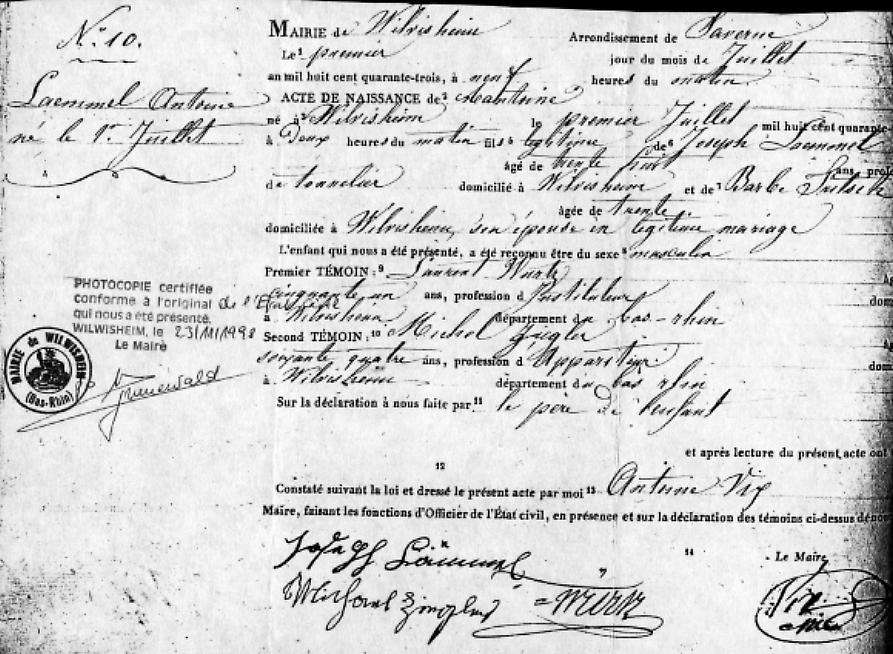 N.° 10.
Laemmel Antoine
né le 1er Juillet
MAIRIE de Wilvisheim Arrondissement de Saverne
Le 1 premier jour du mois de Juillet
an mil huit cent quarante-trois, à neuf heures du matin
ACTE DE NAISSANCE de 2
né à 3 Wilvisheim le premier Juillet mil huit cent quarante
à Deux heures du matin fils 5 légitime de 6 Joseph Laemmel
âgé de trente huit ans prof
de tonnelier domicilié à Wilvisheim et de 7 Barbe
âgée de trente
domiciliée à Wilvisheim, son épouse en légitime mariage
L'enfant qui nous a été présenté, a été reconnu être du sexe 8 masculin
Premier TÉMOIN: 9 Laurent Wurtz
cinquante un ans, profession d'Instituteur
à Wilvisheim département du bas-rhin
Second TÉMOIN: 10 Michel Zingler
soixante quatre ans, profession d'Appariteur
à Wilvisheim département du bas rhin
Sur la déclaration à nous faite par 11 le père de l'enfant
et après lecture du présent acte ont
12
Constaté suivant la loi et dressé le présent acte par moi 13 Antoine Vix
Maire, faisant les fonctions d'Officier de l'État civil, en présence et sur la déclaration des témoins ci-dessus déno
14 Le Maire
Joseph Lämmel
Michael Zingler Wurtz
Vix
PHOTOCOPIE certifiée
conforme à l'original de l'
qui nous a été présenté.
WILWISHEIM, le 23/11/1998
Le Maire
MAIRIE de WILWISHEIM
(Bas-Rhin)
Grunewald